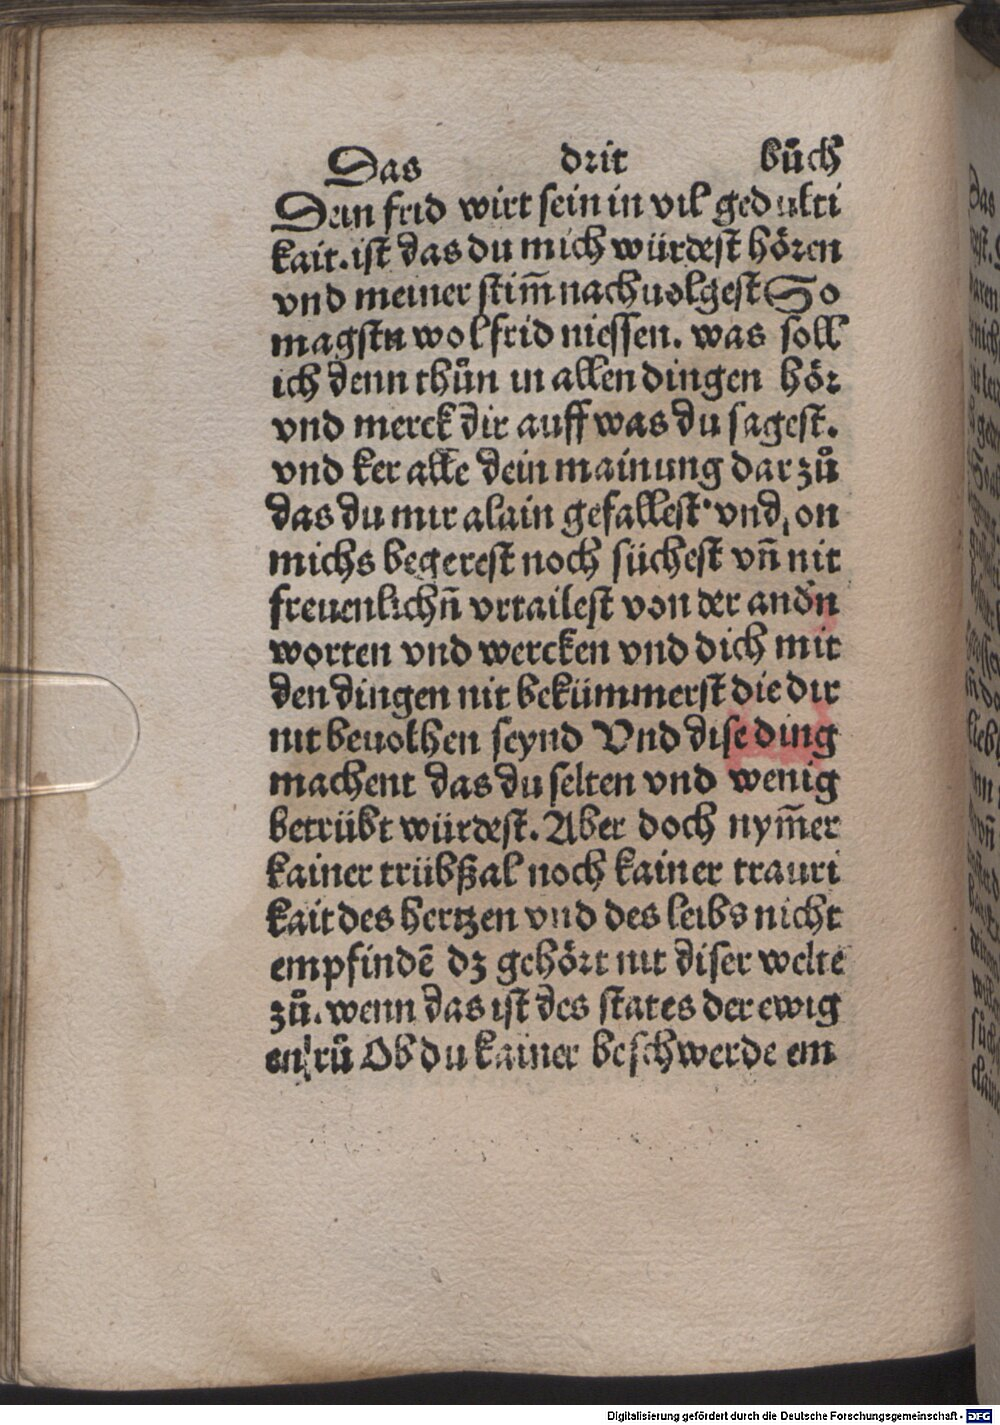 Das drit bůch
Dein frid wirt sein in vil gedulti
kait. ist das du mich würdest hören
vnd meiner stim̄ nachuolgest So
magstu wol frid niessen. was soll
ich denn thůn in allen dingen hör
vnd merck dir auff was du sagest.
vnd ker alle dein mainung dar zů
das du mir alain gefallest vnd on
michs begerest noch süchest vn̄ nit
freuenlichn̄ vrtailest von der andn̄
worten vnd wercken vnd dich mit
den dingen nit bekümmerst die dir
nit beuolhen seynd Vnd dise ding
machent das du selten vnd wenig
betrübt würdest. Aber doch nym̄er
kainer trübßal noch kainer trauri
kait des hertzen vnd des leibs nicht
empfindē dz gehört nit diser welte
zů. wenn das ist des states der ewig
en rů Ob du kainer beschwerde em
Digitalisierung gefördert durch die Deutsche Forschungsgemeinschaft - DFG